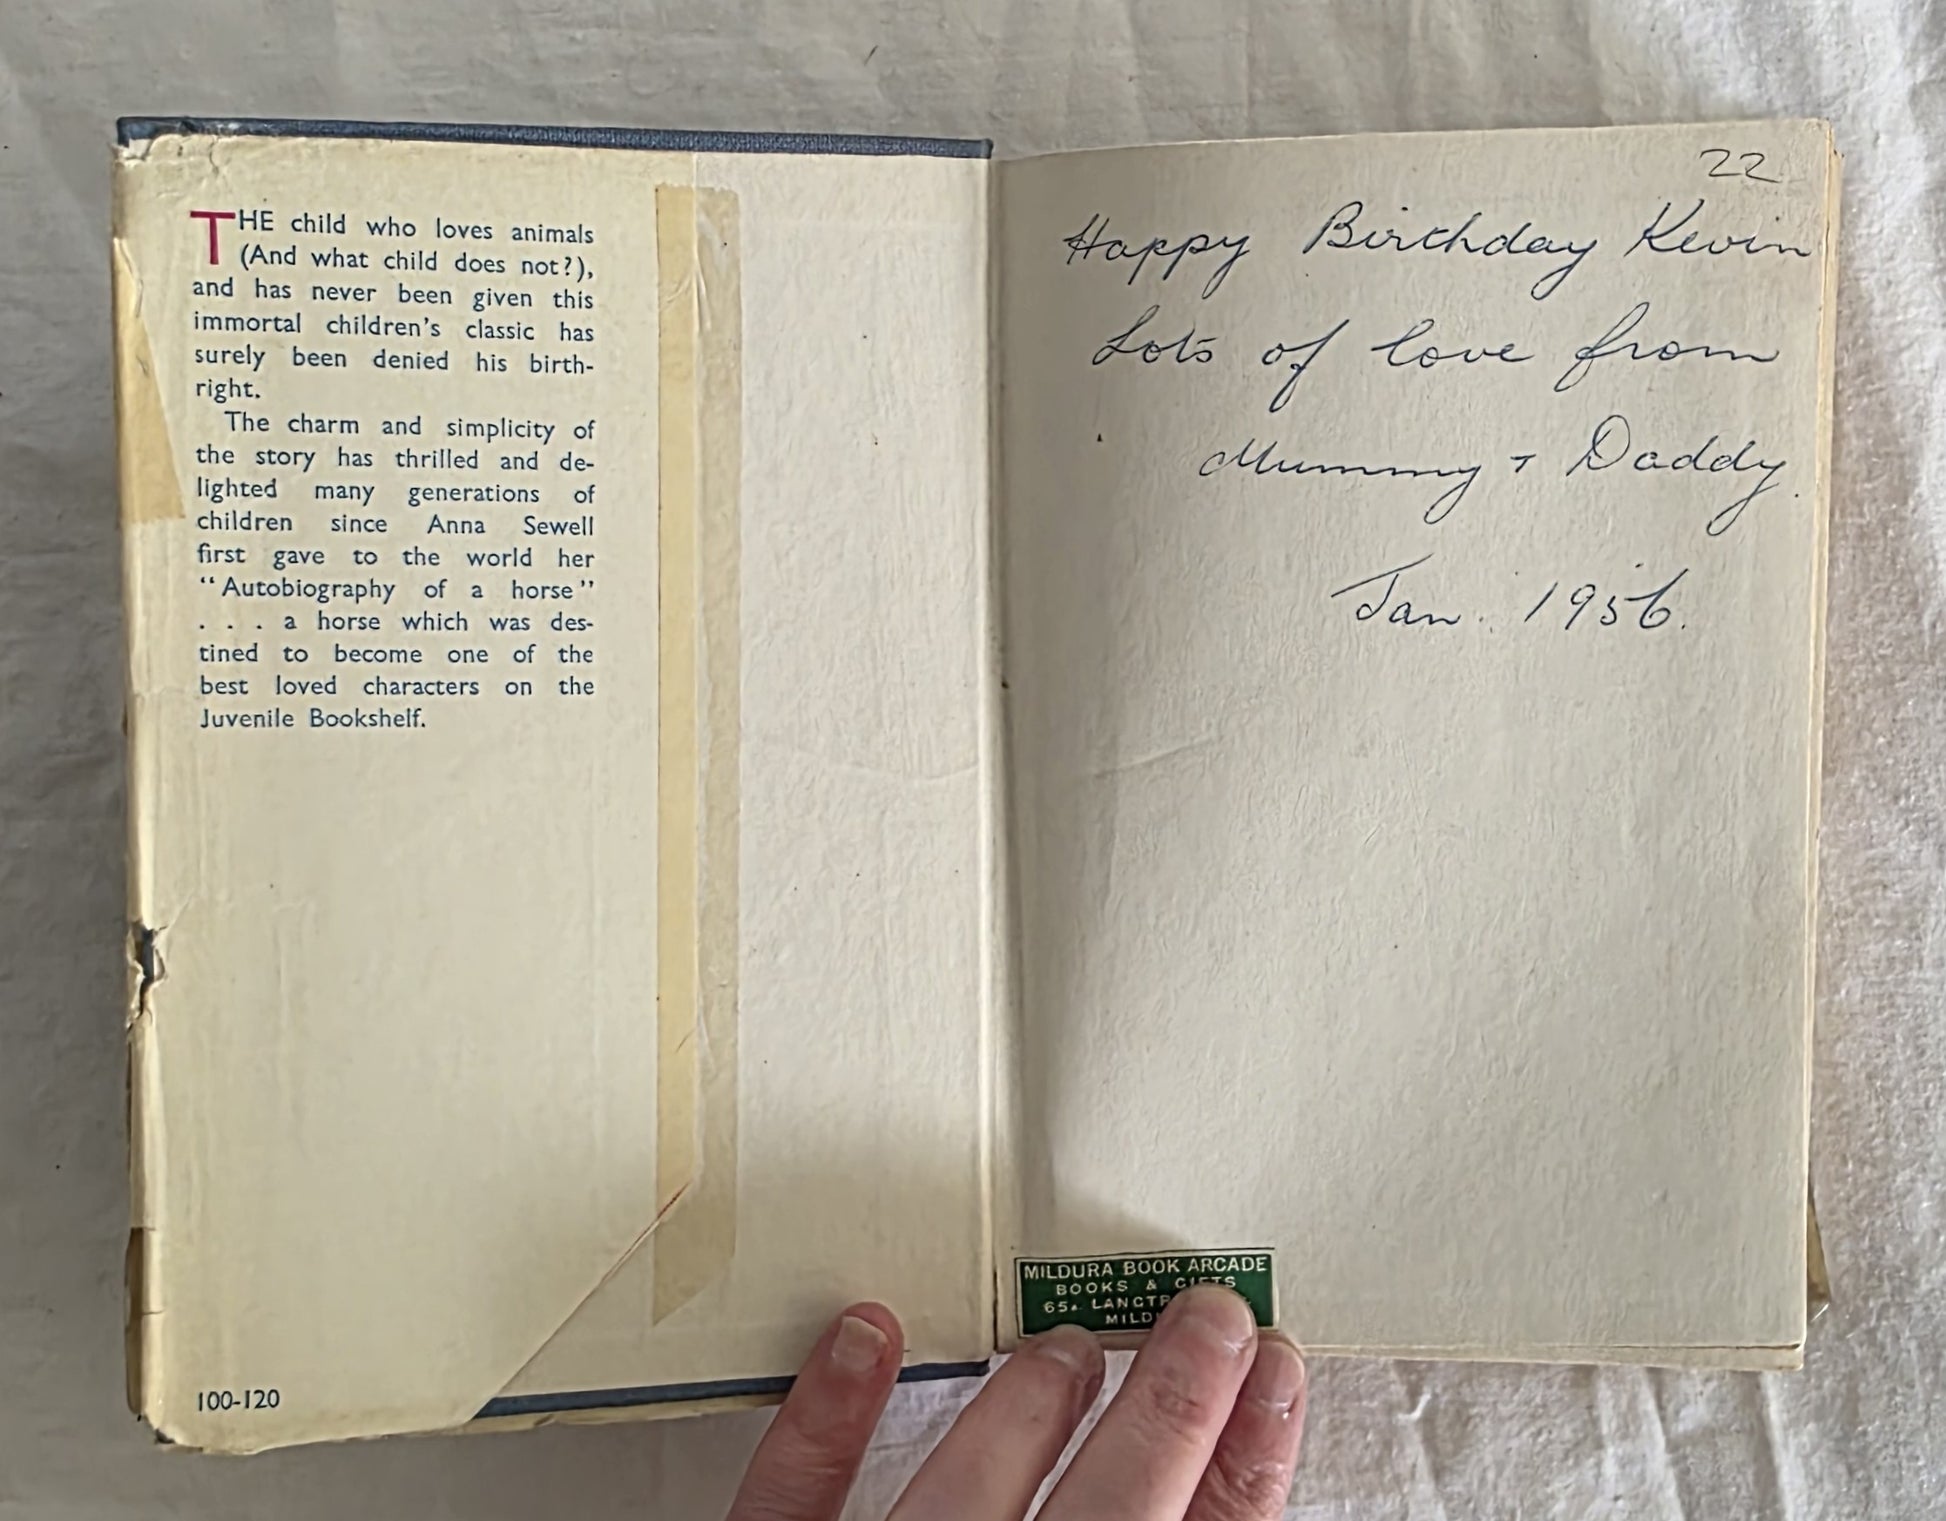 THE child who loves animals
(And what child does not?),
and has never been given this
immortal children's classic has
surely been denied his birth-
right.
The charm and simplicity of
the story has thrilled and de-
lighted many generations of
children since Anna Sewell
first gave to the world her
"Autobiography of a horse"
. . . a horse which was des-
tined to become one of the
best loved characters on the
Juvenile Bookshelf.
100-120
22
Happy Birthday Kevin
Lots of love from
Mummy + Daddy.
Jan. 1956.
MILDURA BOOK ARCADE
BOOKS & GIFTS
65A